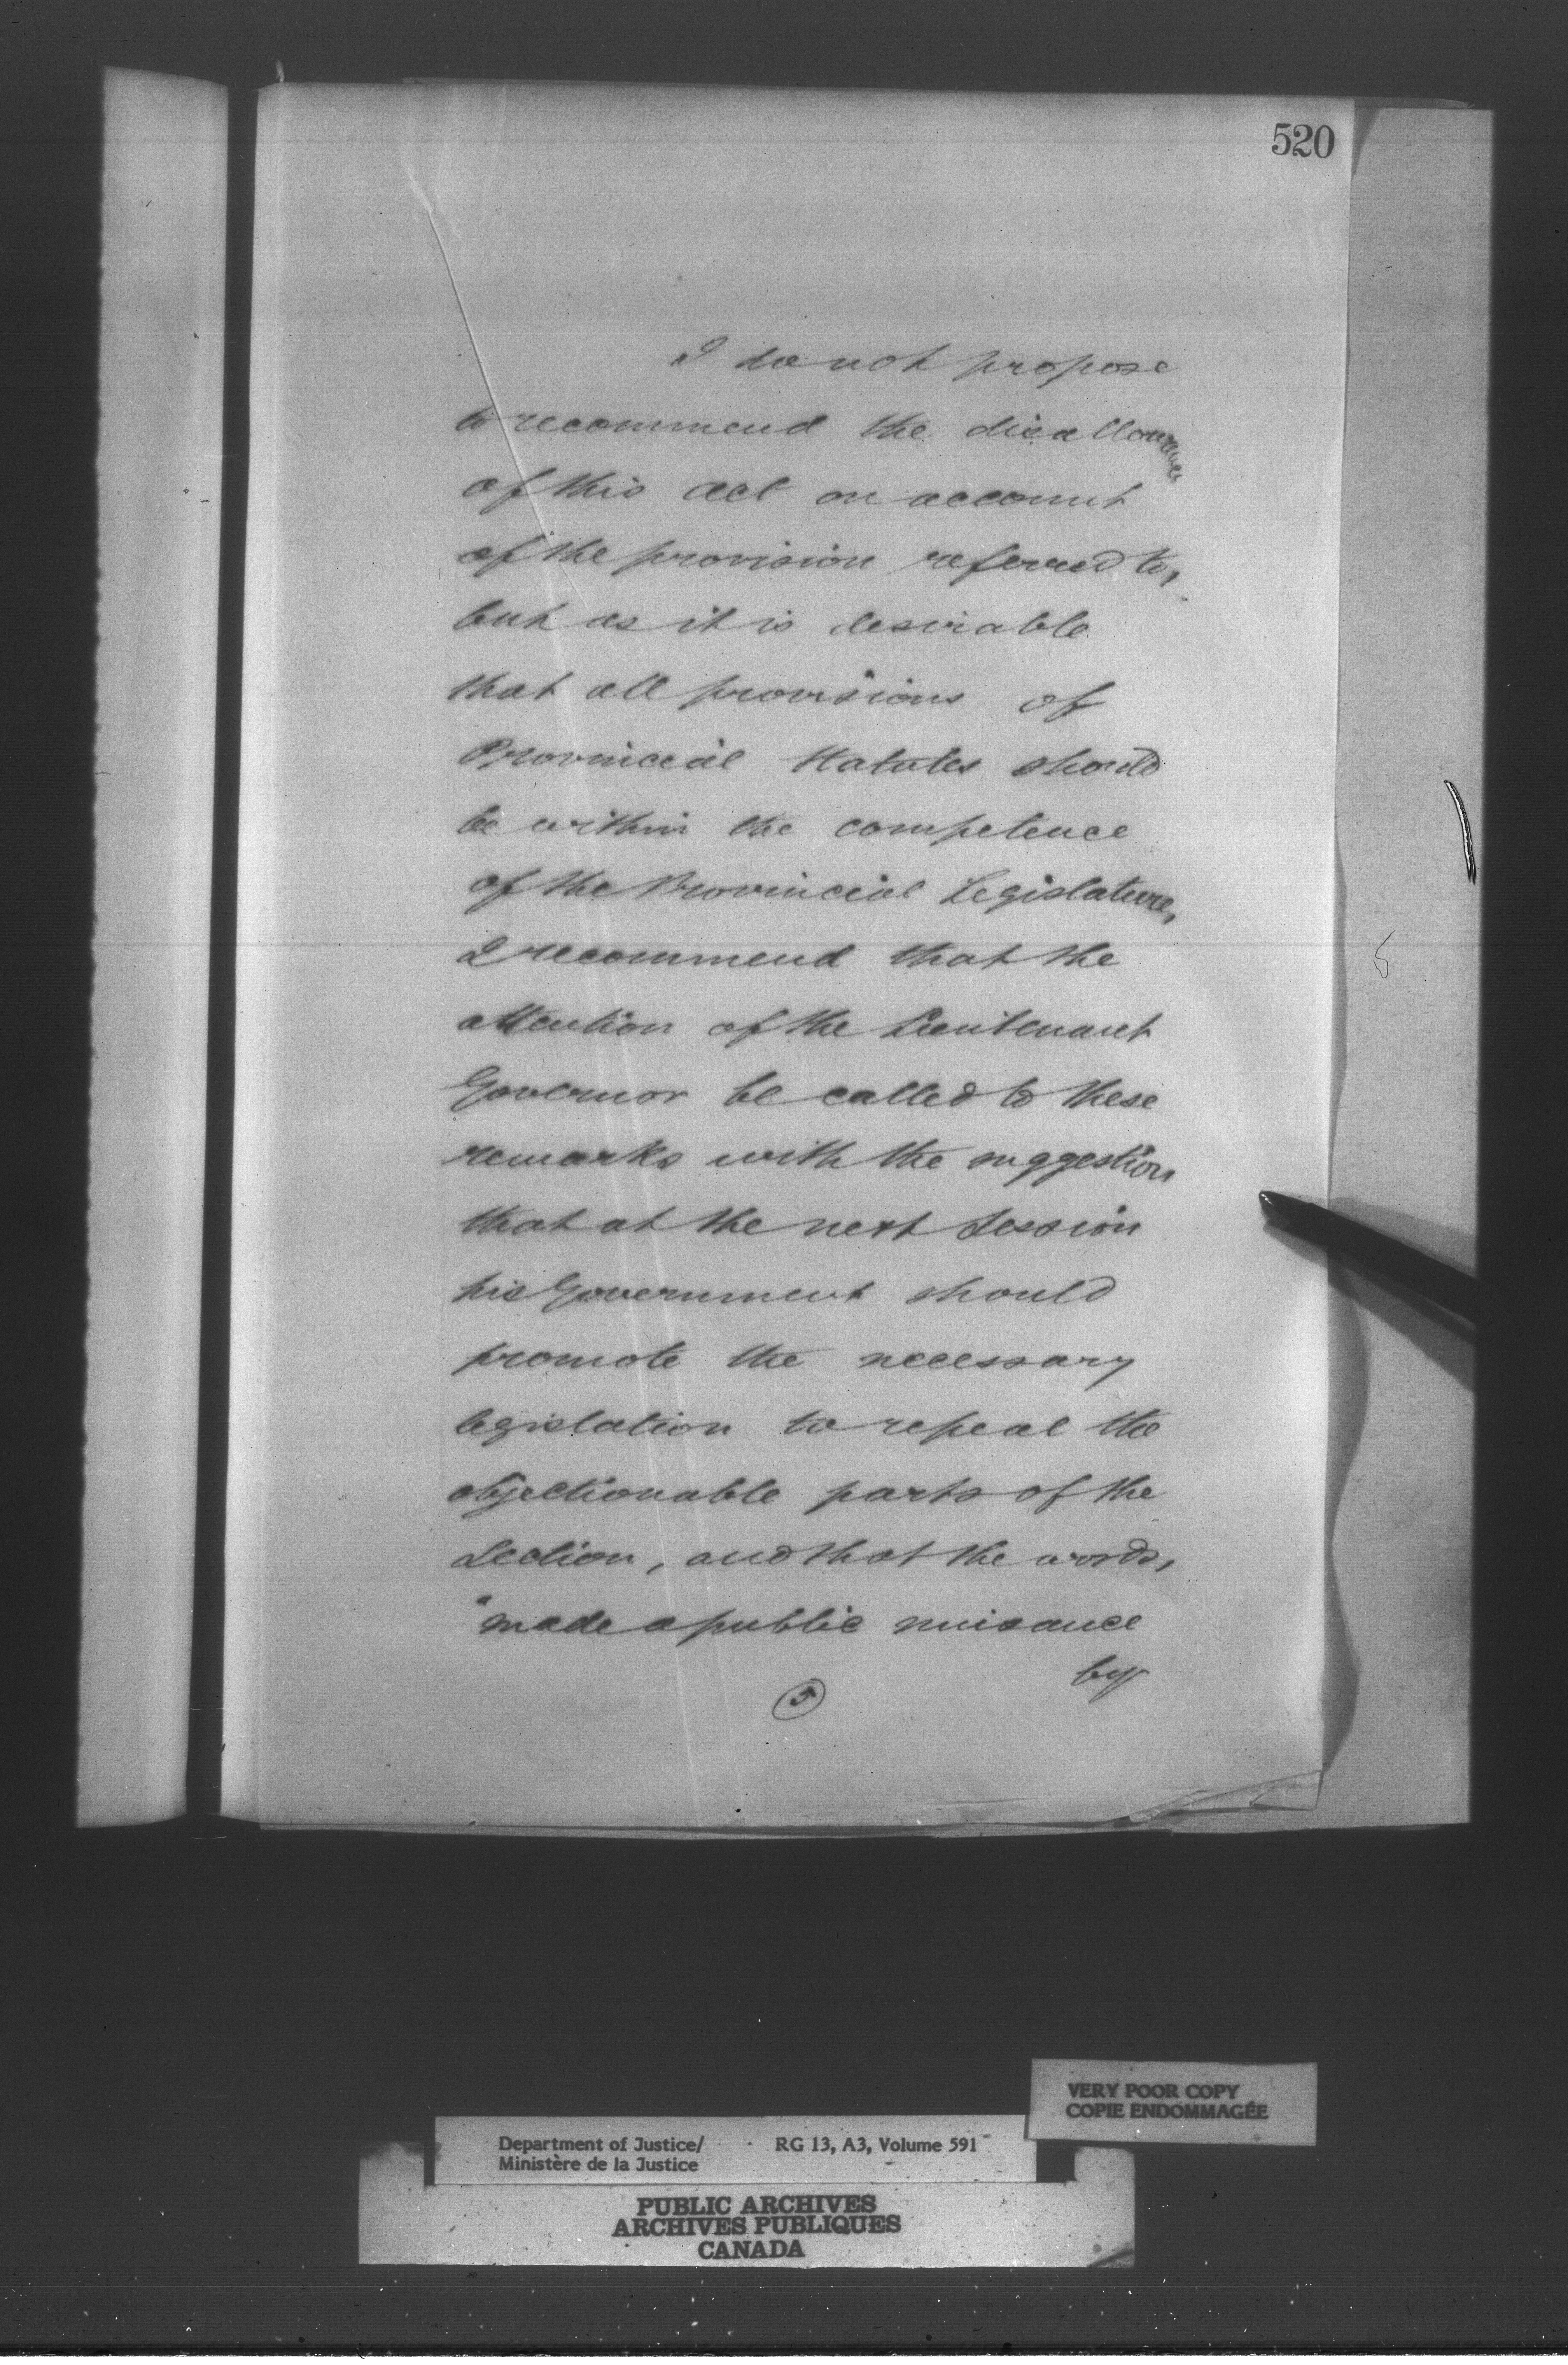 520
I do not propose
to recommend the disallowance
of this Act on account
of the provision referred to,
but as it is desirable
that all provisions of
Provincial Statutes should
be within the competence
of the Provincial Legislature,
I recommend that the
attention of the Lieutenant
Governor be called to these
remarks with the suggestion
that at the next Session
his Government should
promote the necessary
legislation to repeal the
objectionable parts of the
Section, and that the words,
"made a public nuisance
by
5
VERY POOR COPY
COPIE ENDOMMAGÉE
Department of Justice/ RG 13, A3, Volume 591
Ministère de la Justice
PUBLIC ARCHIVES
ARCHIVES PUBLIQUES
CANADA